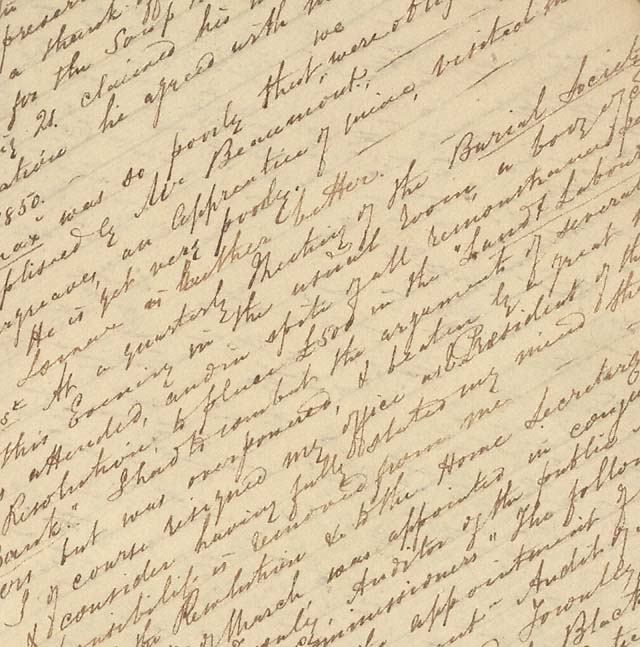 preser
a thank off
for the Soup
g 2s. claimed his
ation he agreed with
1850.
max was so poorly that we were oblig
plished by Mr Beaumont,
rgreaves, an apprentice of mine, visited
He is yet very poorly.
Lomax is rather better.
st At a quarterly Meeting of the Burial Societ
this Evening in the usual room, a body of
attended, and in spite of all remonstrance
Resolution, to place £500 in the "Land & Labour
Bank." I had to combat the arguments of several
ers but was overpowered, & beaten by a great
I of course resigned my office as President of the
& consider having fully stated my mind tha
onsibility is removed from me
Resolution & to the Home Secretary
of March was appointed in conju
Auditor of the public
mmissioners" The follow
appointment of
Audit of
Townley
Black